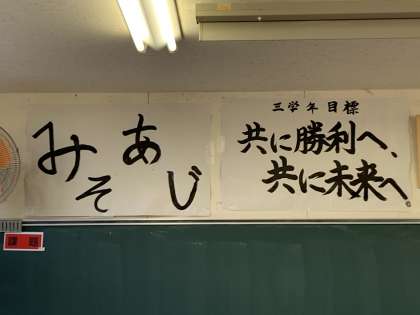 みそあじ
三学年目標
共に勝利へ、
共に未来へ。